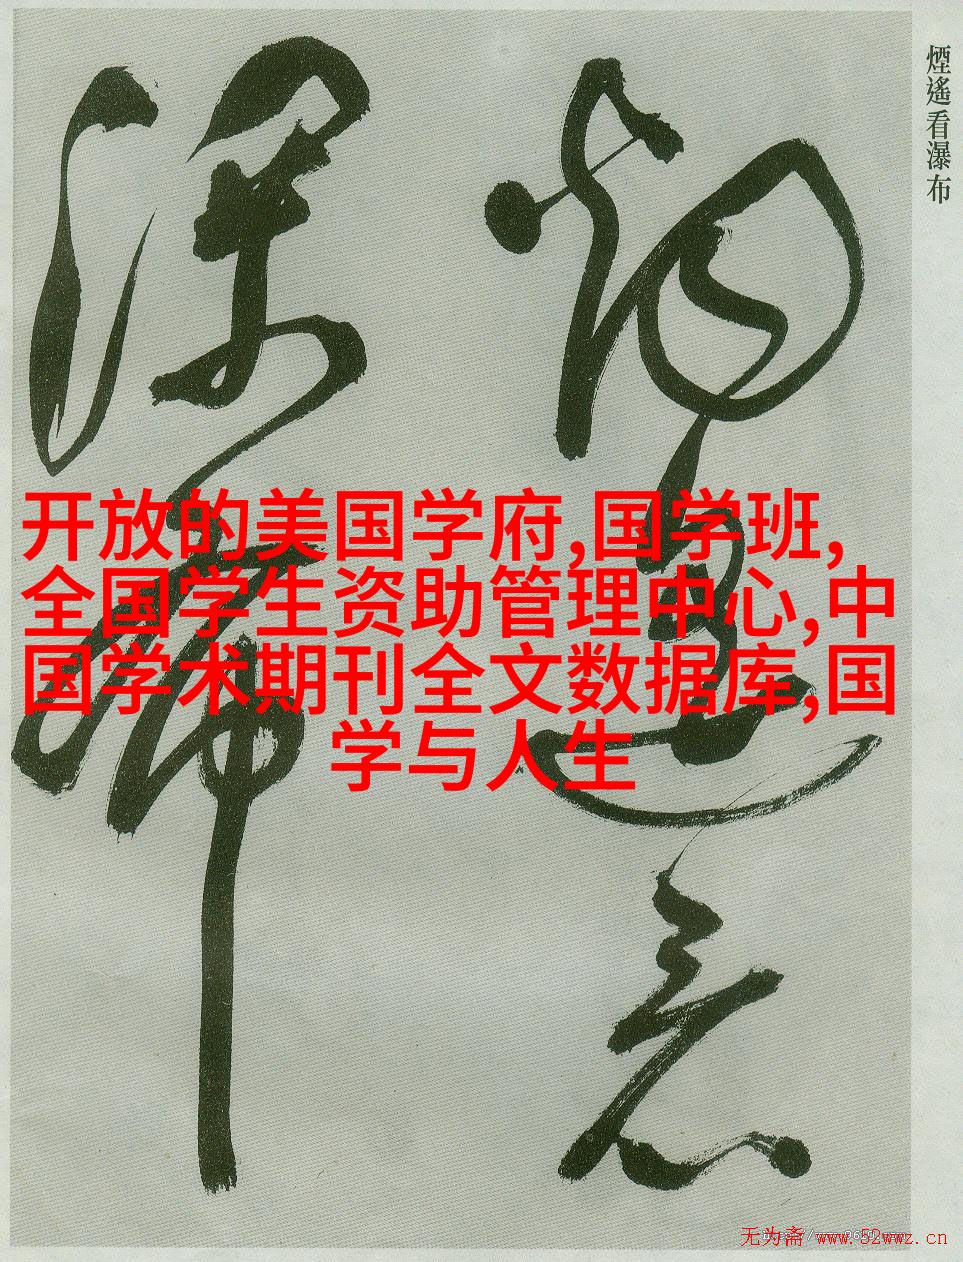 煙遙看瀑布
煙遙看
瀑布
开放的美国学府,国学班,
全国学生资助管理中心,中
国学术期刊全文数据库,国
学与人生
无为斋 www.52wwz.cn